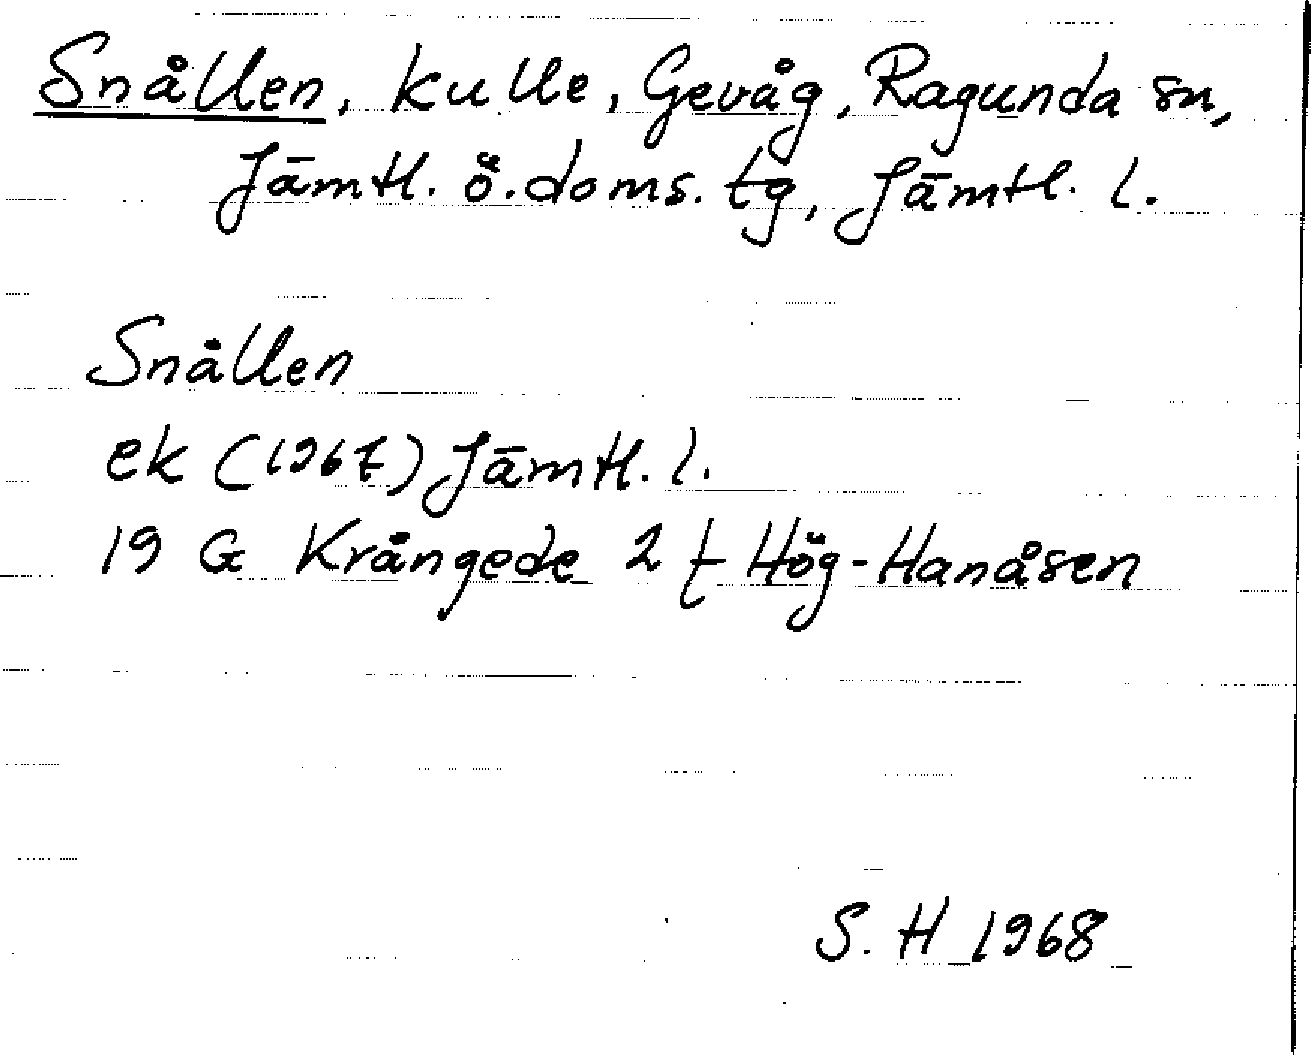 Snållen, kulle, Gevåg, Ragunda sn,
Jämtl. ö. doms. tg, Jämtl. l.
Snållen
ek (1967) Jämtl. l.
19 G Krångede 2 f Hög-Hanåsen
S. H 1968